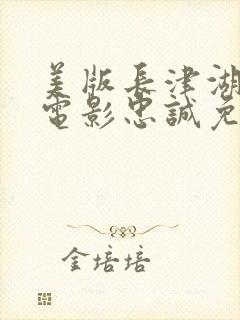 美版長津湖
電影忠誠免
金培培